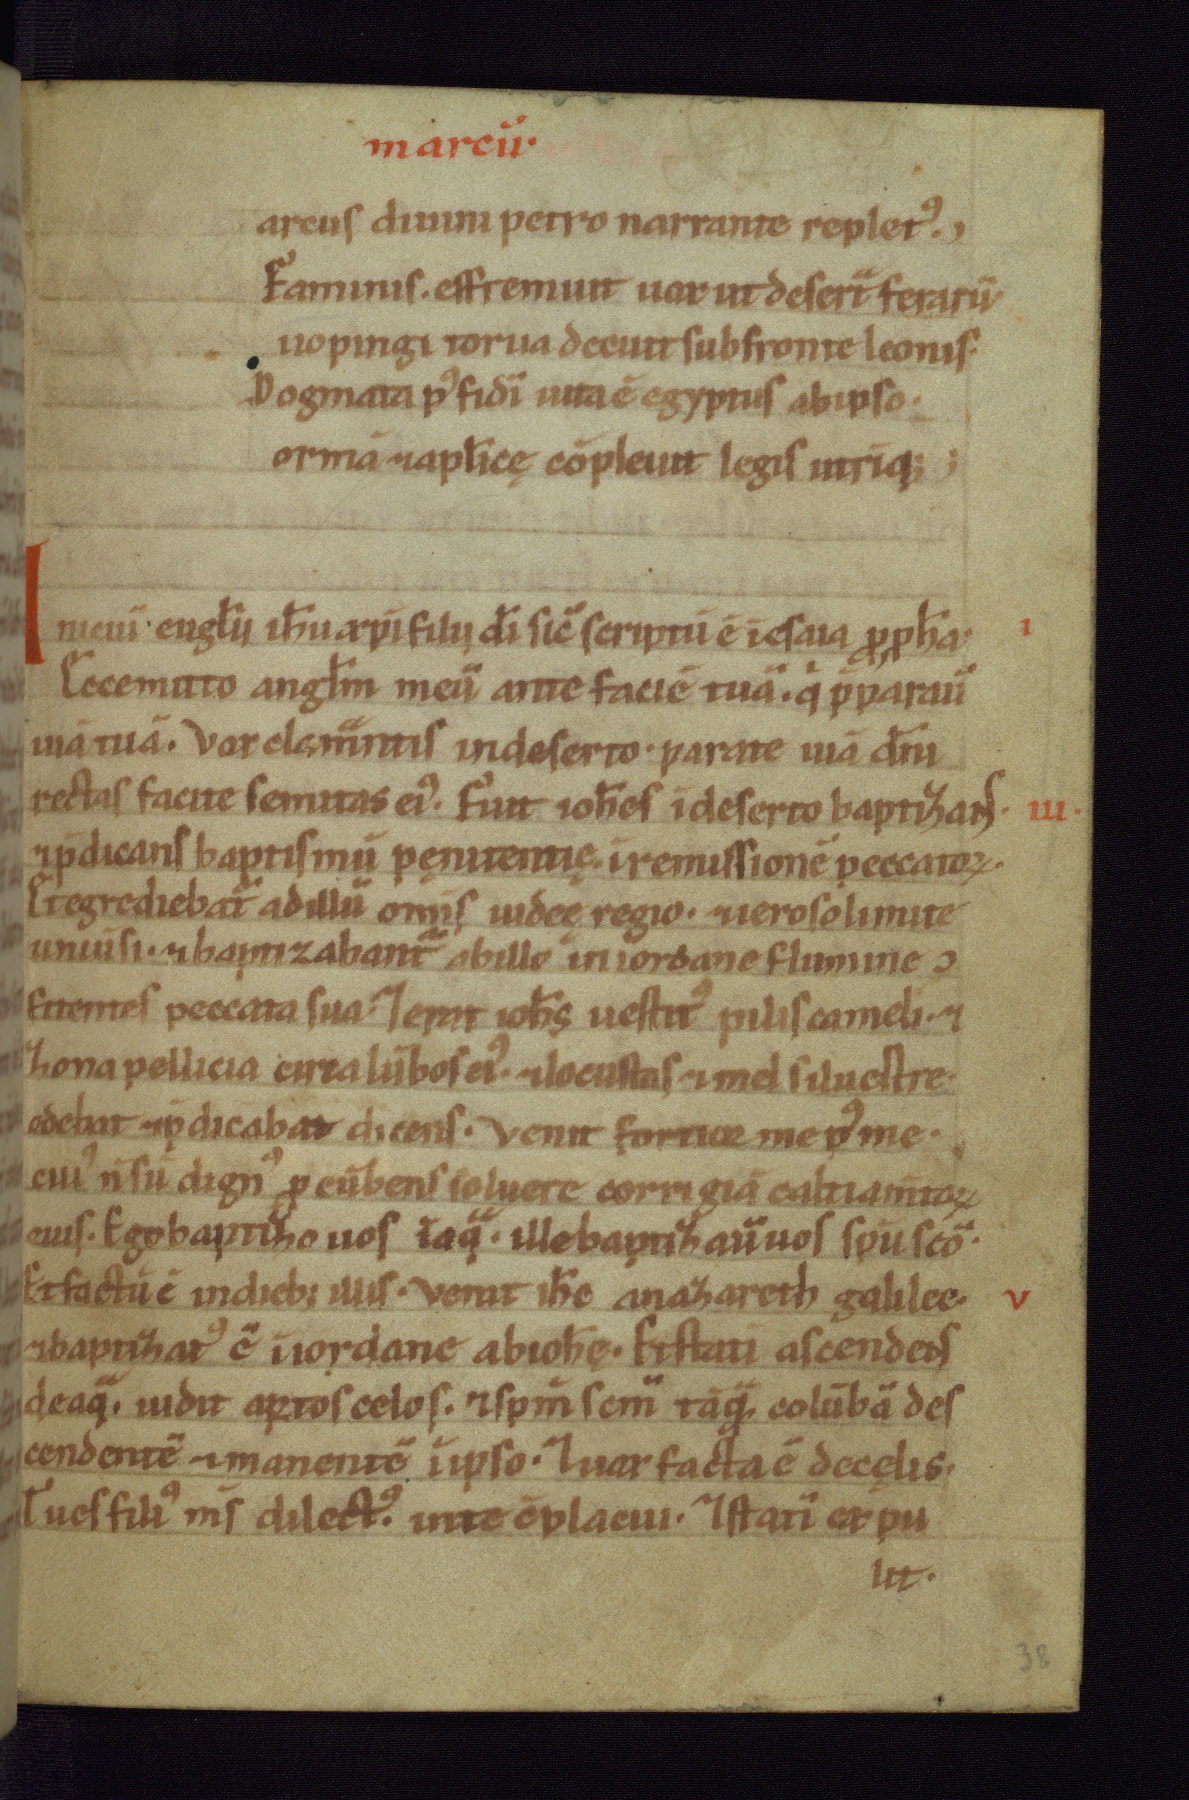 marcū·
arcus diuini petro narrante replet᷒·
Faminis· effremuit uox ut desert̄ ferarū
uo pingi torua decuit sub fronte leonis·
Dogmata p᷒fidī uita ē egyptus ab ipso·
ormā ⁊ aplicę cōpleuit legis utriq;
Iniciū eugl̄ij ih̄u xp̄i filij dī sic̄ scriptū ē i esaia ꝓph̄a· ı
Ecce mitto angl̄m meū ante faciē tuā· q̇ p̄parau̅
uiā tuā· Vox clam̄ntis in deserto· parate uiā dn̄i
rectas facite semitas ei᷒· Fuit ioh̄es ī deserto baptizans· ııı·
⁊ p̄dicans baptismū pęnitentię· ī remissionē peccatoꝝ·
Et egrediebat̄ ad illū om̄is iudeę regio· ⁊ ierosolimite
uniu̅si· ⁊ baptizabant̄ ab illo in iordane flumine ↄ
fitentes peccata sua· ⁊ erat ioh̄s uestit᷒ pilis cameli· ⁊
zona pellicia circa lūbos ei᷒· ⁊ locustas ⁊ mel siluestre·
edebat ⁊ p̄dicabat dicens· Venit fortior me p᷒ me·
cui᷒ n̄ sū dign᷒ ꝓcūbens soluere corrigiā caltiam̄toꝝ
eius· Ego baptizo uos ī aq̄· ille baptizau̅ uos sp̄u scō·
Et factū ē in dieb; illis· Venit ih̄c a nazareth galilee· v
⁊ baptizat᷒ ē ī iordane ab ioh̄e· Et stati ascendens
de aq̄· uidit aptos celos· ⁊ sp̄m scm̄ tāq̄ colūbā des
cendentē ⁊ manentē ī ipso· ⁊ uox facta ē de cęlis·
Tu es fili᷒ m̄s dilect᷒· in te cplacui· ⁊ stati ex pu
lit·
38